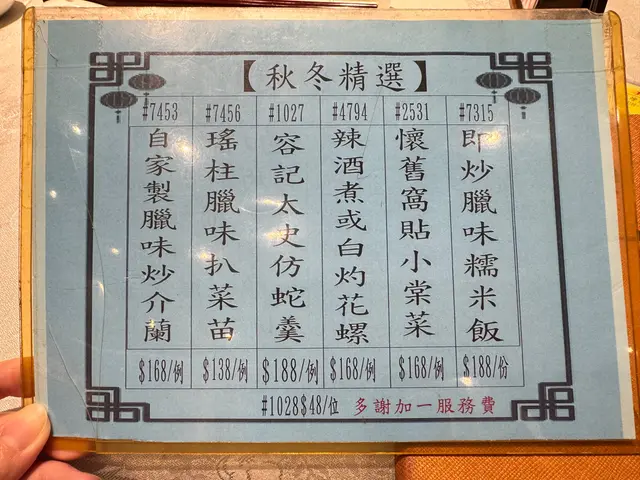 【秋冬精選】
#7315
即炒臘味糯米飯
$188/份
#2531
懷舊窩貼小棠菜
$168/例
#4794
辣酒煮或白灼花螺
$168/例
#1027
容記太史仿蛇羹
$188/例
#7456
瑤柱臘味扒菜苗
$138/例
#7453
自家製臘味炒介蘭
$168/例
#1028$48/位 多謝加一服務費